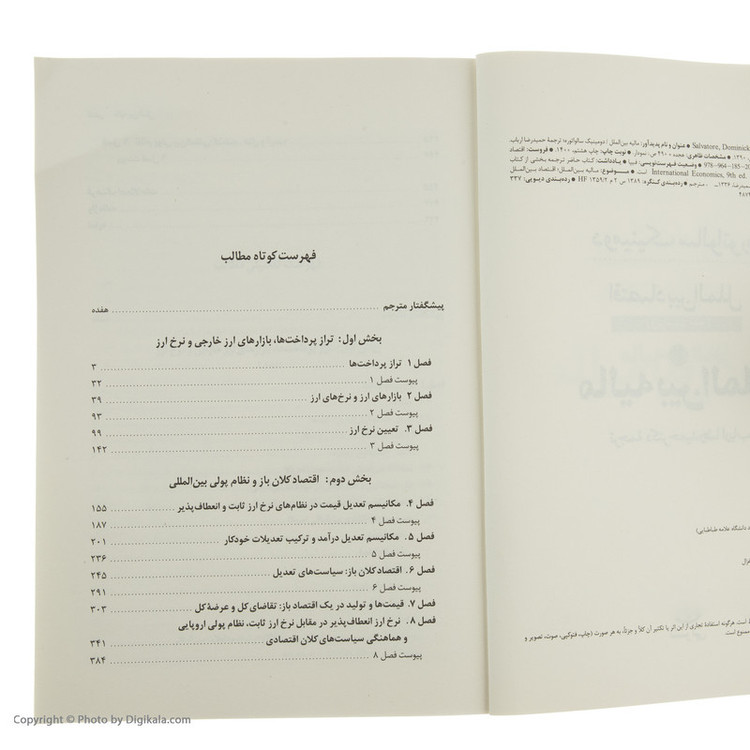 Salvatore, Dominick ● عنوان و نام پدیدآور: مالیه بین‌الملل / دومینیک سالواتوره؛ ترجمه حمیدرضا ارباب
۱۳۹۰. ● مشخصات ظاهری: هفده، ص، نمودار. ● نوبت چاپ: چاپ هشتم، ۱۴۰۰. ● فروست: اقتصاد
978-964-185-20 ● وضعیت فهرست‌نویسی: فیپا ● یادداشت: کتاب حاضر ترجمه بخشی از کتاب
International Economics, 9th ed. است. ● موضوع: مالیه بین‌الملل؛ اقتصاد بین‌الملل
حمیدرضا ۱۳۳۶ـ ، مترجم ● رده‌بندی کنگره: ۱۳۸۹ س ۲ م / ۱۳۵۹ HF ● رده‌بندی دیویی: ۳۳۷
دانشگاه علامه طباطبایی)
است. هرگونه استفادهٔ تجاری از این اثر یا تکثیر آن کلاً و جزئاً، به هر صورت (چاپ، فتوکپی، صوت، تصویر و
ممنوع است
فهرست کوتاه مطالب
پیشگفتار مترجم ........ هفده
بخش اول: تراز پرداخت‌ها، بازارهای ارز خارجی و نرخ ارز
فصل ۱ تراز پرداخت‌ها ........ ۳
پیوست فصل ۱ ........ ۳۲
فصل ۲ بازارهای ارز و نرخ‌های ارز ........ ۳۹
پیوست فصل ۲ ........ ۹۳
فصل ۳. تعیین نرخ ارز ........ ۹۹
پیوست فصل ۳ ........ ۱۴۲
بخش دوم: اقتصاد کلان باز و نظام پولی بین‌المللی
فصل ۴. مکانیسم تعدیل قیمت در نظام‌های نرخ ارز ثابت و انعطاف‌پذیر ........ ۱۵۵
پیوست فصل ۴ ........ ۱۸۷
فصل ۵. مکانیسم تعدیل درآمد و ترکیب تعدیلات خودکار ........ ۲۰۱
پیوست فصل ۵ ........ ۲۳۶
فصل ۶. اقتصاد کلان باز: سیاست‌های تعدیل ........ ۲۴۵
پیوست فصل ۶ ........ ۲۹۱
فصل ۷. قیمت‌ها و تولید در یک اقتصاد باز: تقاضای کل و عرضهٔ کل ........ ۳۰۳
فصل ۸. نرخ ارز انعطاف‌پذیر در مقابل نرخ ارز ثابت، نظام پولی اروپایی
و هماهنگی سیاست‌های کلان اقتصادی ........ ۳۴۱
پیوست فصل ۸ ........ ۳۸۴
Copyright © Photo by Digikala.com